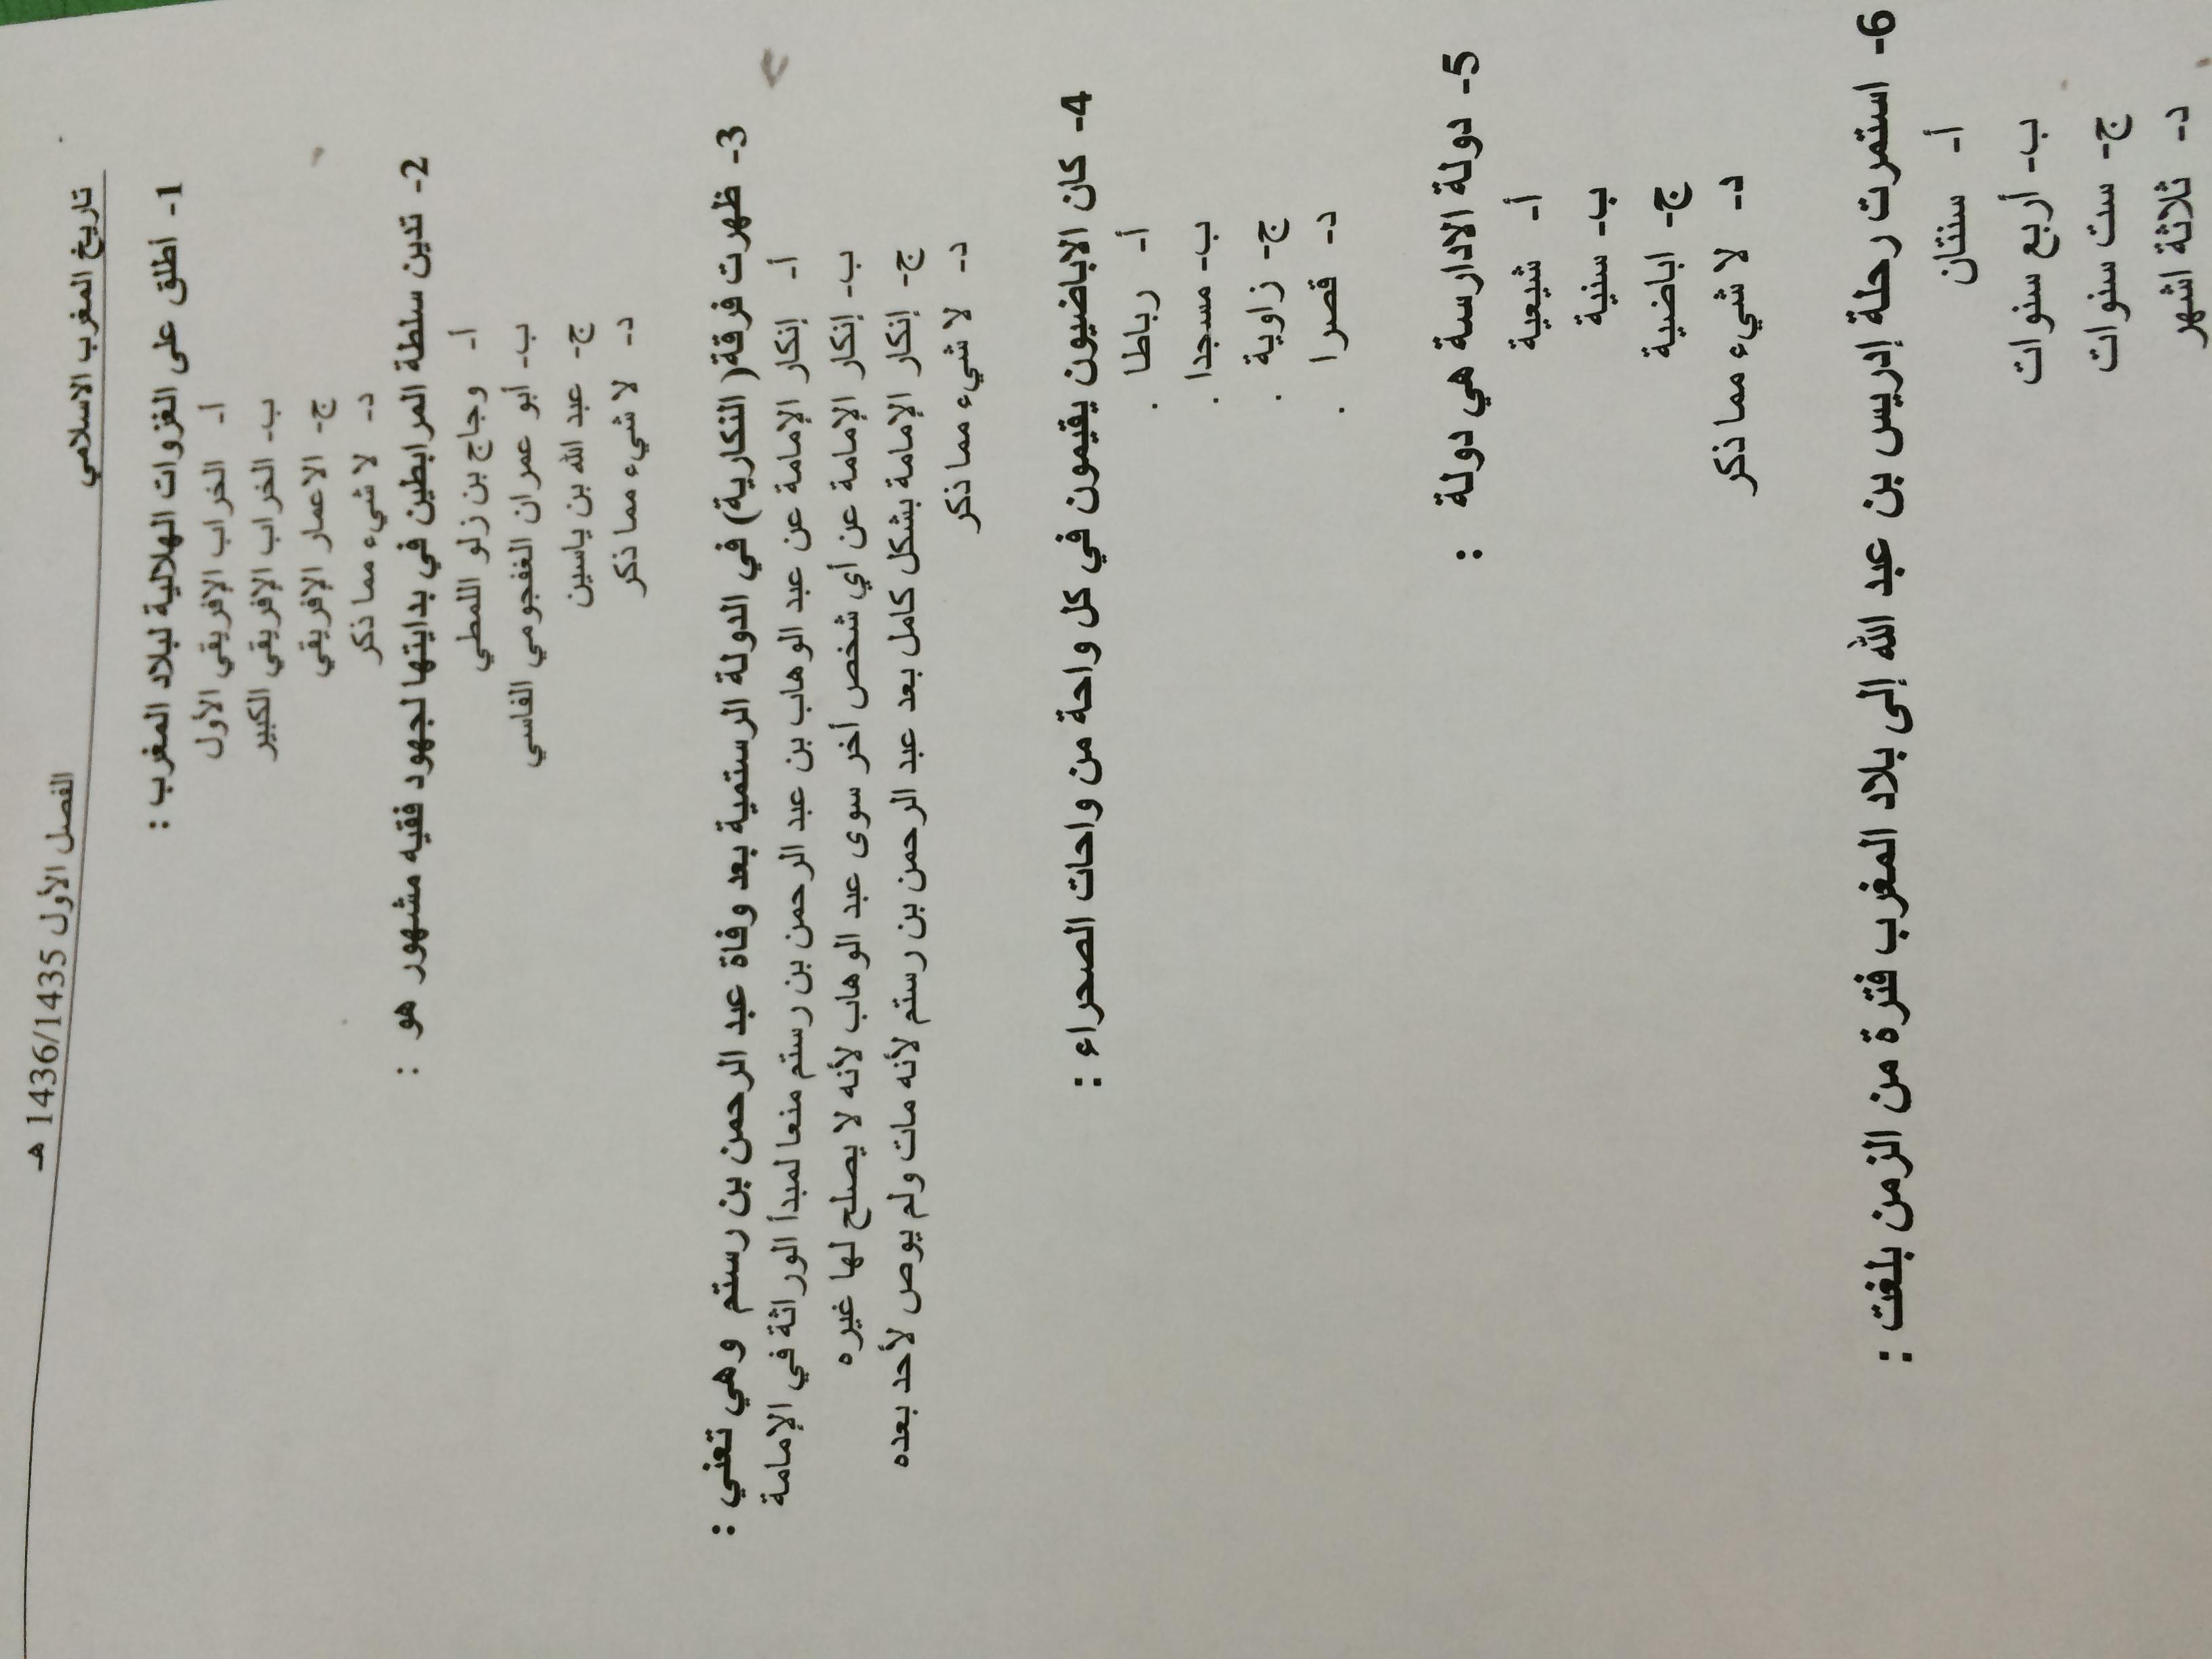 تاريخ المغرب الاسلامي الفصل الأول 1436/1435 هـ
1- اطلق على الغزوات الهلالية لبلاد المغرب :
أ- الخراب الإفريقي الأول
ب- الخراب الإفريقي الكبير
ج- الاعمار الإفريقي
د- لا شيء مما ذكر
2- تدين سلطة المرابطين في بدايتها لجهود فقيه مشهور هو :
أ- وجاج بن زلو اللمطي
ب- أبو عمران الغفجومي الفاسي
ج- عبد الله بن ياسين
د- لا شيء مما ذكر
3- ظهرت فرقة( النكارية) في الدولة الرستمية بعد وفاة عبد الرحمن بن رستم وهي تعني :
أ- إنكار الإمامة عن عبد الوهاب بن عبد الرحمن بن رستم منعا لمبدأ الوراثة في الإمامة
ب- إنكار الإمامة عن أي شخص أخر سوى عبد الوهاب لأنه لا يصلح لها غيره
ج- إنكار الإمامة بشكل كامل بعد عبد الرحمن بن رستم لأنه مات ولم يوص لأحد بعده
د- لا شيء مما ذكر
4- كان الاباضيون يقيمون في كل واحة من واحات الصحراء :
أ- رباطا .
ب- مسجدا .
ج- زاوية .
د- قصرا .
5- دولة الادارسة هي دولة :
أ- شيعية
ب- سنية
ج- اباضية
د- لا شيء مما ذكر
6- استمرت رحلة إدريس بن عبد الله إلى بلاد المغرب فترة من الزمن بلغت :
أ- سنتان
ب- أربع سنوات
ج- ست سنوات
د- ثلاثة اشهر